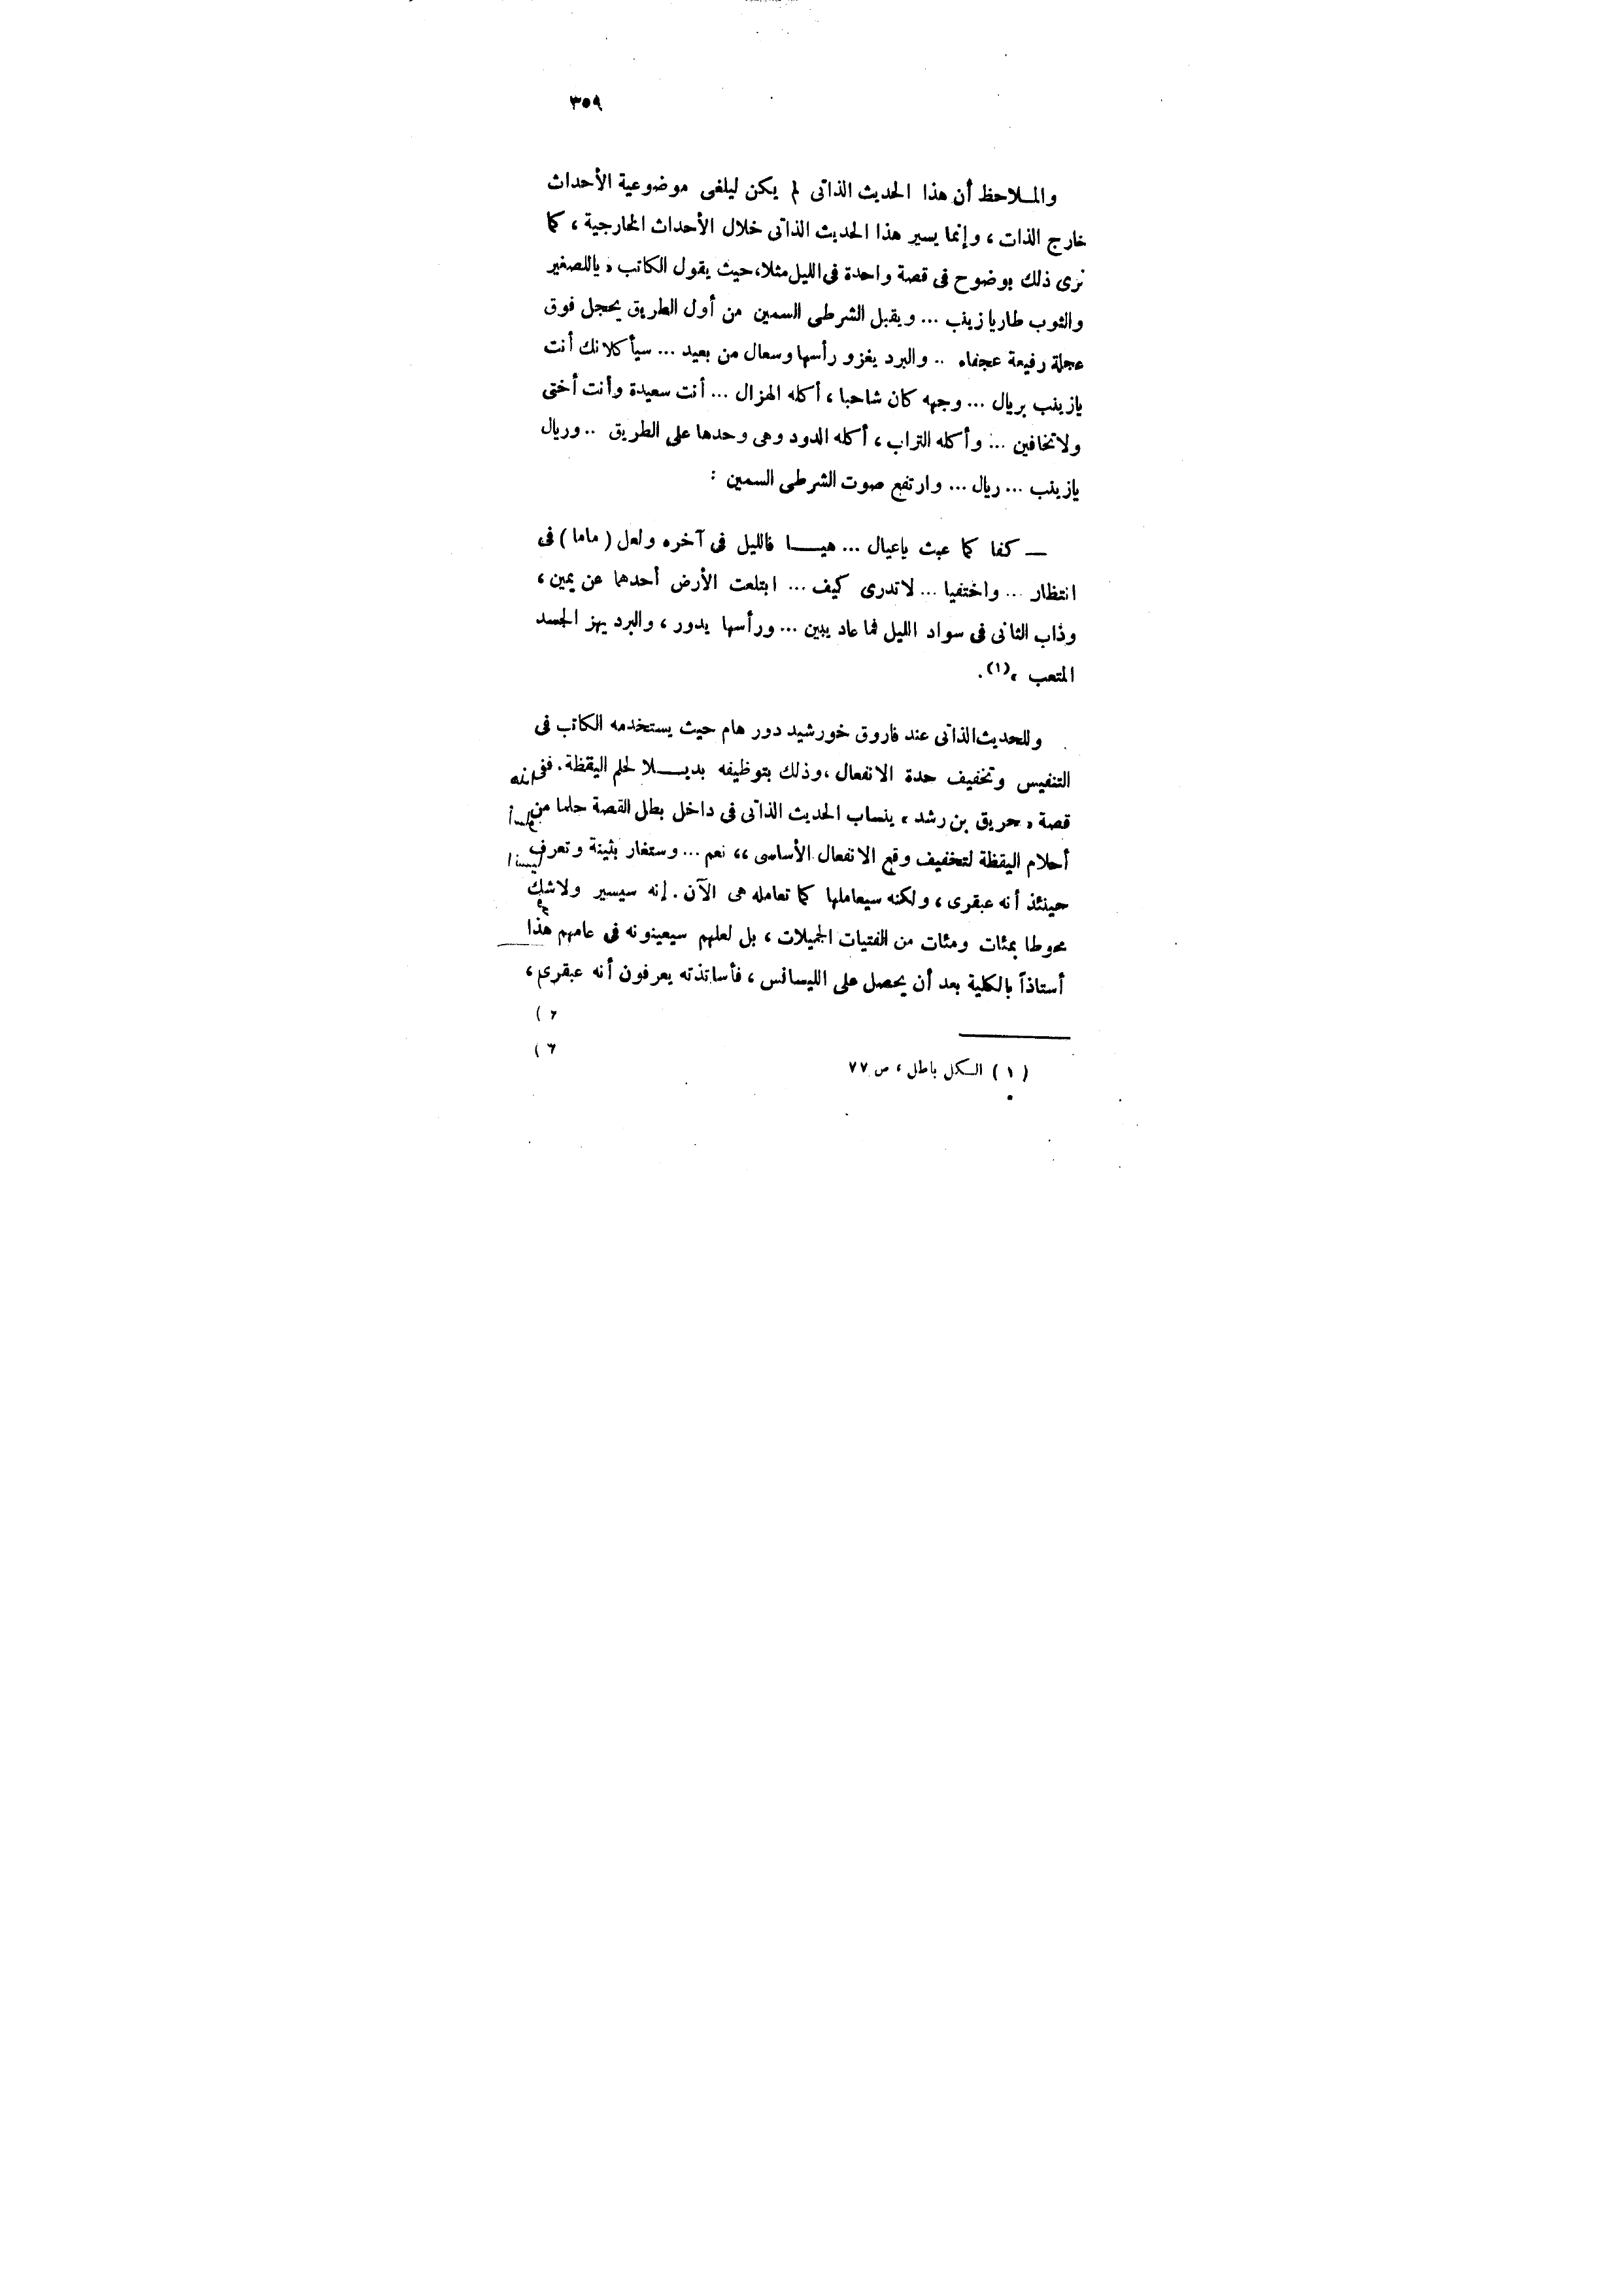 ٣٥٩
والملاحظ أن هذا الحديث الذاتى لم يكن ليلغى موضوعية الأحداث
خارج الذات ، وإنما يسير هذا الحديث الذاتى خلال الأحداث الخارجية ، كما
نرى ذلك بوضوح فى قصة واحدة فى الليل مثلا، حيث يقول الكاتب « ياللصغير
والثوب طار يا زينب ... ويقبل الشرطى السمين من أول الطريق يحجل فوق
عجلة رفيعة عجفاء .. والبرد يغزو رأسها وسعال من بعيد ... سيأكلانك أنت
يازينب بريال ... وجهه كان شاحبا ، أكله الهزال ... أنت سعيدة وأنت أختى
ولا تخافين ... وأكله التراب ، أكله الدود وهى وحدها على الطريق .. وريال
يازينب ... ريال ... وارتفع صوت الشرطى السمين :
— كفا كما عبث ياعيال ... هيا فالليل فى آخره ولعل ( ماما ) فى
انتظار ... واختفيا ... لاتدرى كيف ... ابتلعت الأرض أحدهما عن يمين ،
وذاب الثانى فى سواد الليل فما عاد يبين ... ورأسها يدور ، والبرد يهز الجسد
المتعب »(١).
وللحديث الذاتى عند فاروق خورشيد دور هام حيث يستخدمه الكاتب فى
التنفيس وتخفيف حدة الانفعال ، وذلك بتوظيفه بديلا لحلم اليقظة . ففى
قصة « حريق بن رشد » ينساب الحديث الذاتى فى داخل بطل القصة حلما من
أحلام اليقظة لتخفيف وقع الانفعال الأساسى ،، نعم ... وستغار بثينة وتعرف
حينئذ أنه عبقرى ، ولكنه سيعاملها كما تعامله هى الآن . إنه سيسير ولاشك
محوطا بمئات ومئات من الفتيات الجميلات ، بل لعلهم سيعينونه فى عامهم هذا
أستاذاً بالكلية بعد أن يحصل على الليسانس ، فأساتذته يعرفون أنه عبقرى ،
( ١ ) الكل باطل ، ص ٧٧